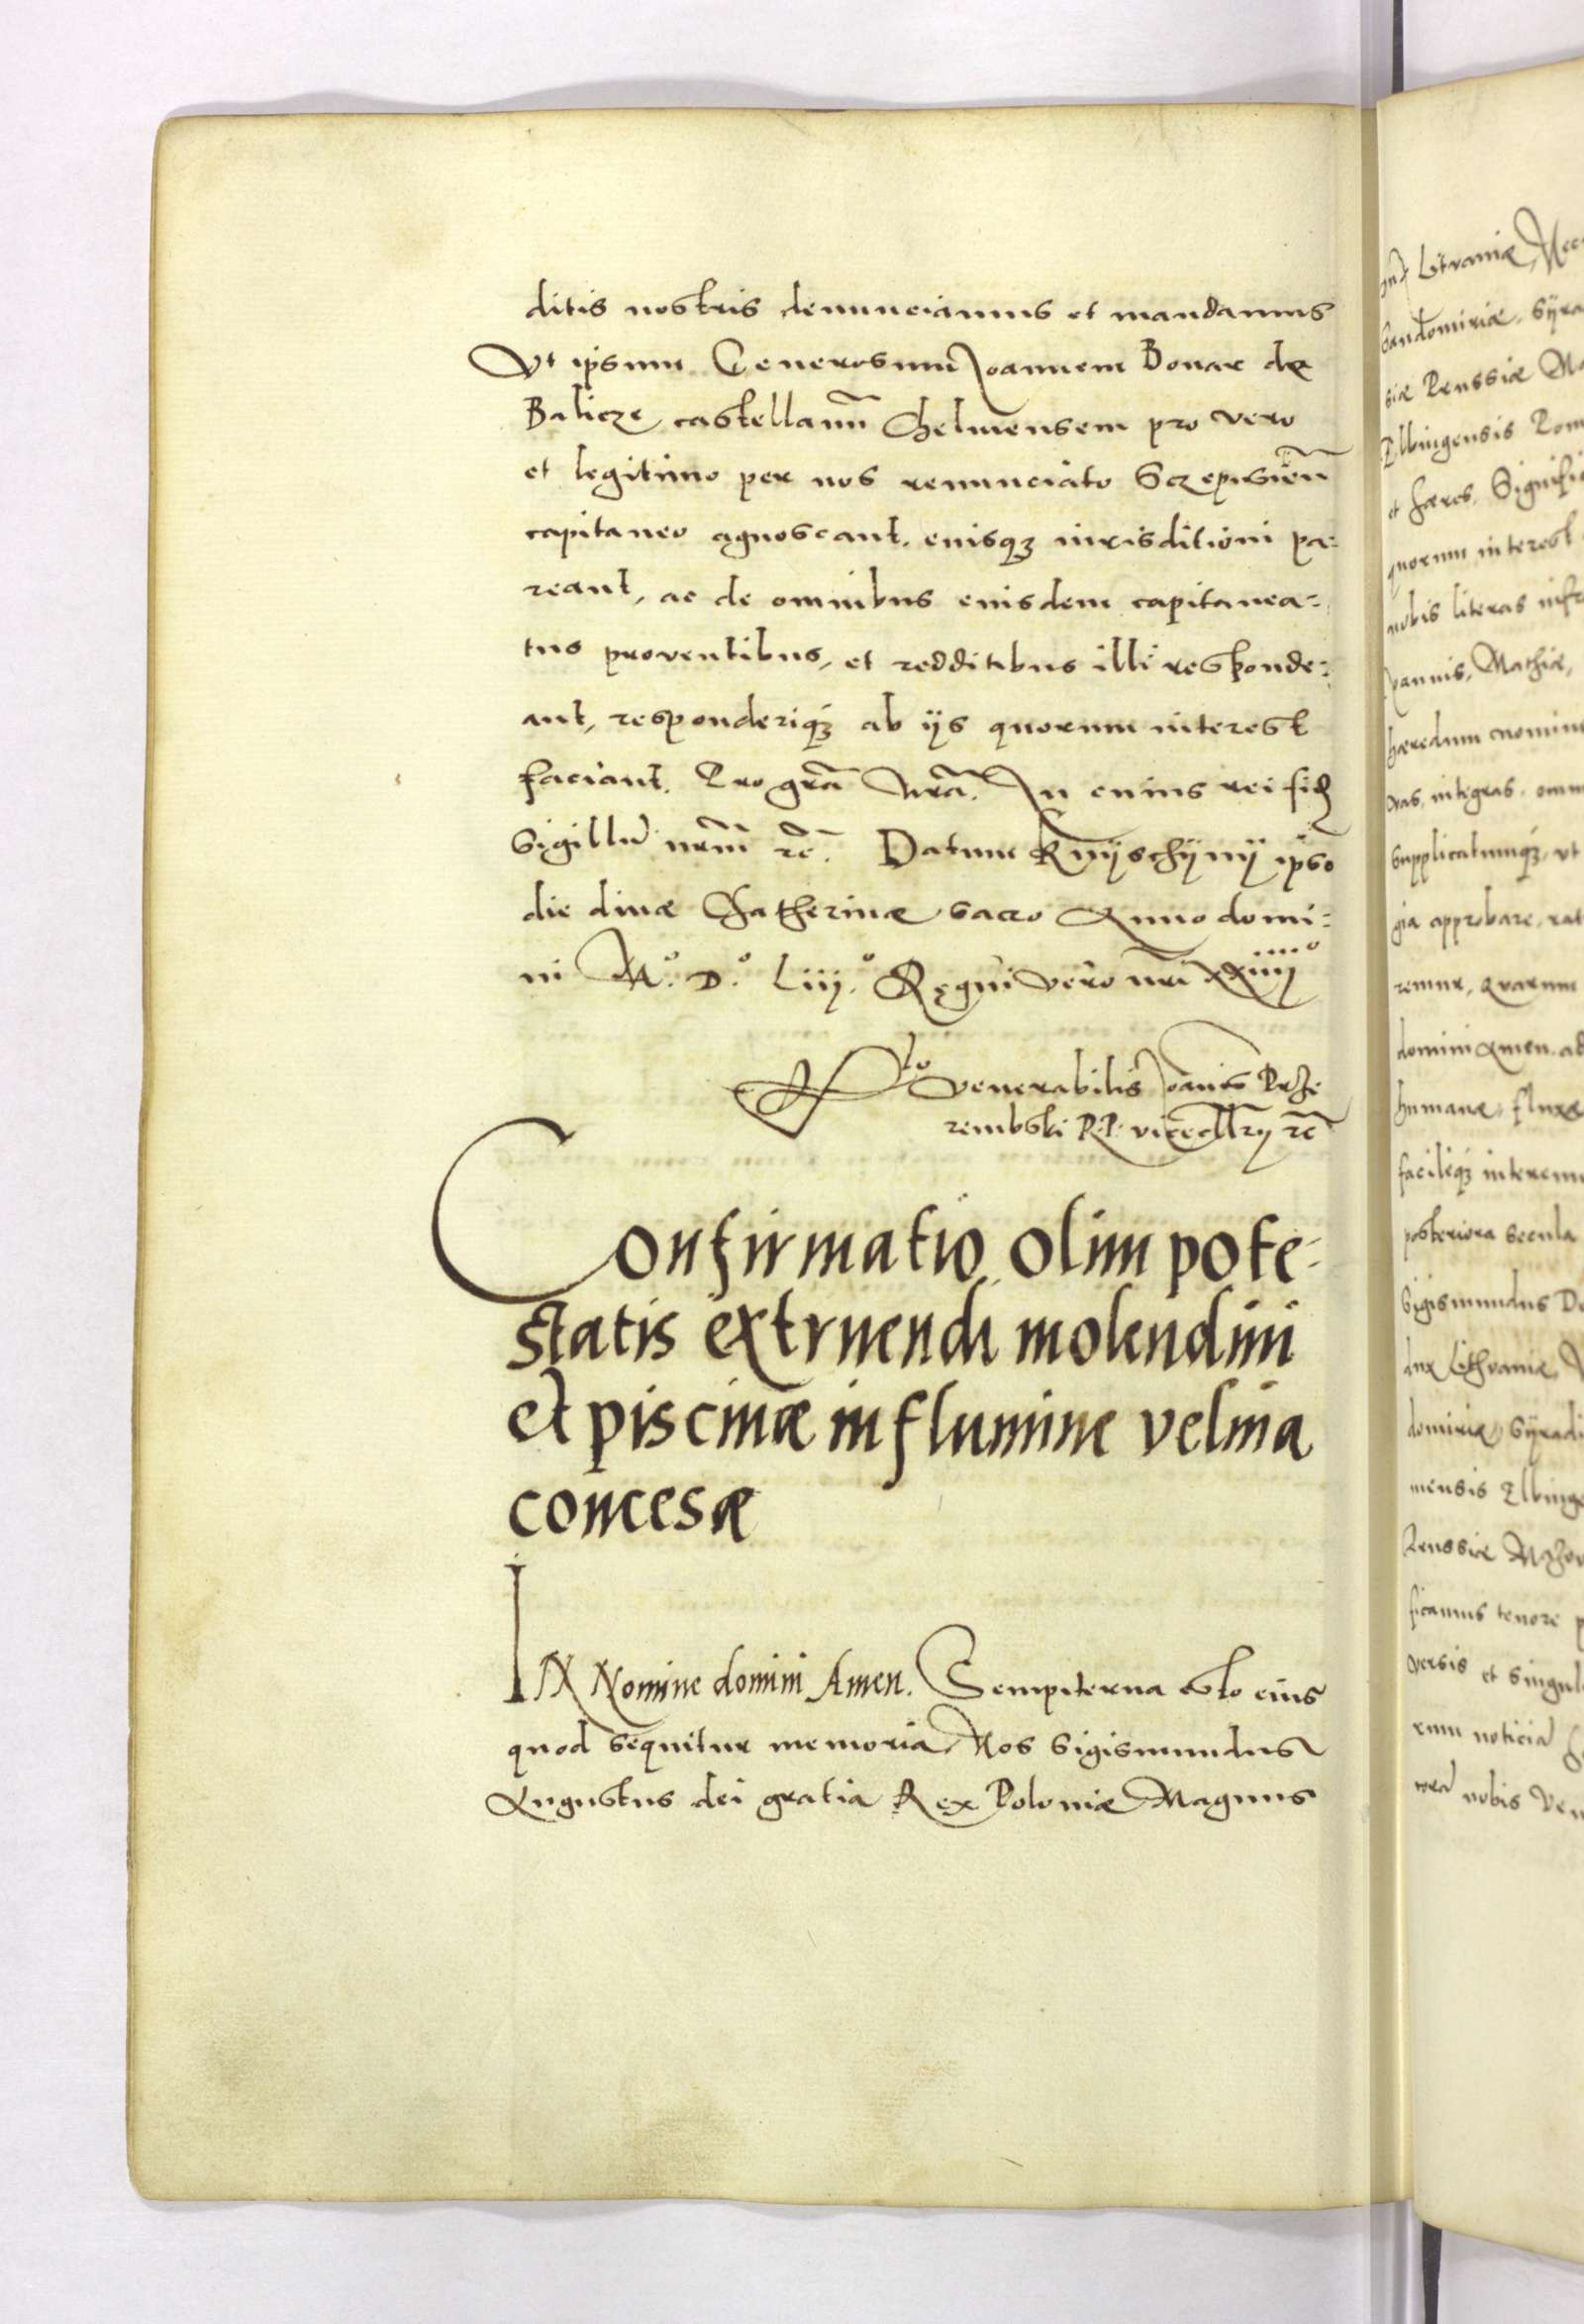 ditis nostris denunciamus et mandamus
Vt ipsum Generosum Joannem Bonar de
Balicze castellanũ Chelmensem pro vero
et legitimo per nos renunciato Sczepusieñ
capitaneo agnoscant. eiusqꝫ iurisditioni pa=
reant, ac de omnibus eiusdem capitanea=
tus proventibus, et redditibus illi responde=
ant, responderiqꝫ ab ijs quorum interest
faciant. Pro gr̃a ñra. In cuius rei fidẽ
Sigillũ nr̃m zc̃. Datum Knÿschÿnÿ ipso
die diuæ Chatherinæ sacro Anno domi=
ni M.° D.° Liij.° Regni vero nr̃i xxiiij°
Rto Venerabilis Joanis Prze
rembski R. P. vicecllrij zc̃
Confirmatio olim pote=
statis extruendi molendini
et piscinæ in flumine velnia
concesæ
IN Nomine domini Amen. Sempiterna esto eius
quod sequitur memoria, Nos Sigismundus
Augustus dei gratia Rex Poloniæ Magnus
Litvaniæ,
Sandomiriæ, Syra
siæ Prussiæ Ma
Elbingensis Pom
et hæres. Signifi
quorum interest
nobis literas infr
Joannis, Mathiæ,
hæredum
ras, integras, omn
Supplicatumqꝫ, vt
gia approbare, rat
remur, Quarum
domini Amen. ad
humanæ, fluxæ
faciliqꝫ interem
posteriora secula
Sigismundus De
dux Lithvaniæ,
domiriæ, Syradi
mensis Elbinge
Prussiæ Mazov
ficamus tenore p
versis et singul
rum noticiã
corã nobis Ven